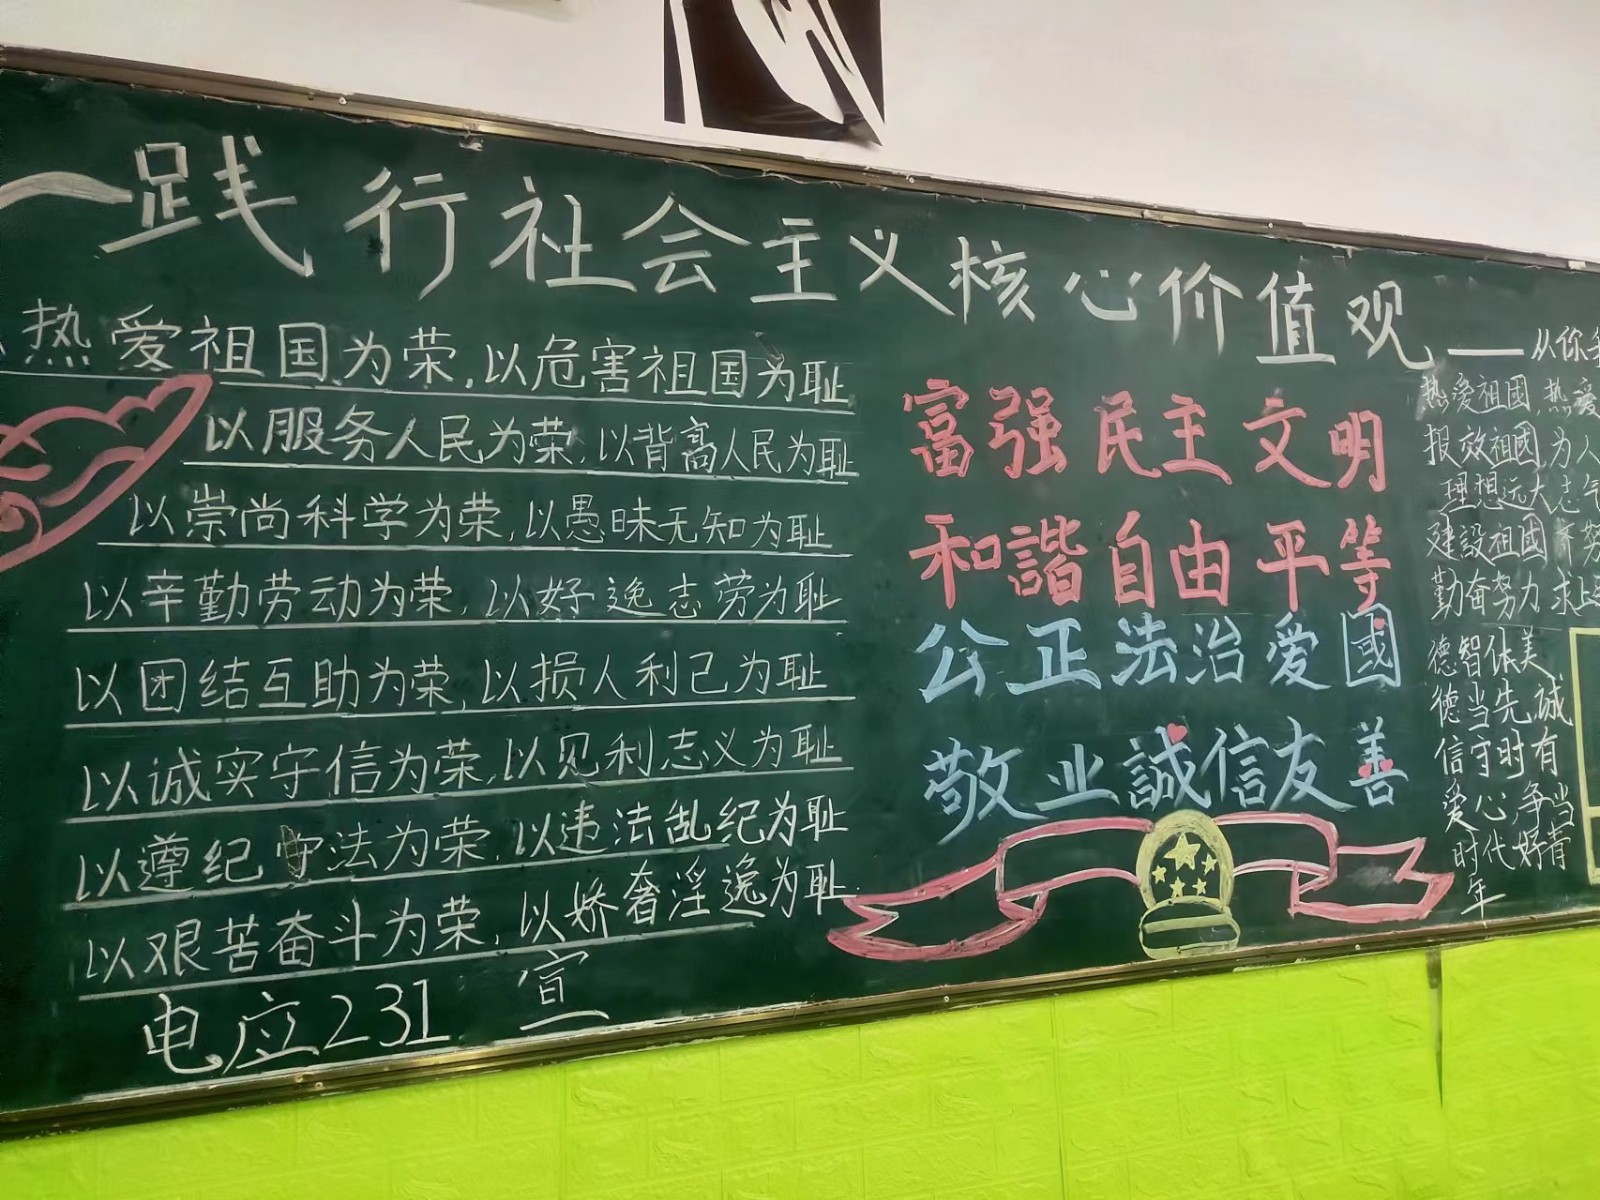 一践行社会主义核心价值观——从你
热爱祖国为荣,以危害祖国为耻
以服务人民为荣,以背离人民为耻
以崇尚科学为荣,以愚昧无知为耻
以辛勤劳动为荣,以好逸恶劳为耻
以团结互助为荣,以损人利己为耻
以诚实守信为荣,以见利忘义为耻
以遵纪守法为荣,以违法乱纪为耻
以艰苦奋斗为荣,以娇奢淫逸为耻
电应231 宣
富强民主文明
和諧自由平等
公正法治爱國
敬业誠信友善
热爱祖國,热爱
报效祖國为人
理想远大志气
建設祖國齐努
勤奋努力求上
德智体美
德当先诚
信守时有
爱心争当
时代好青
年